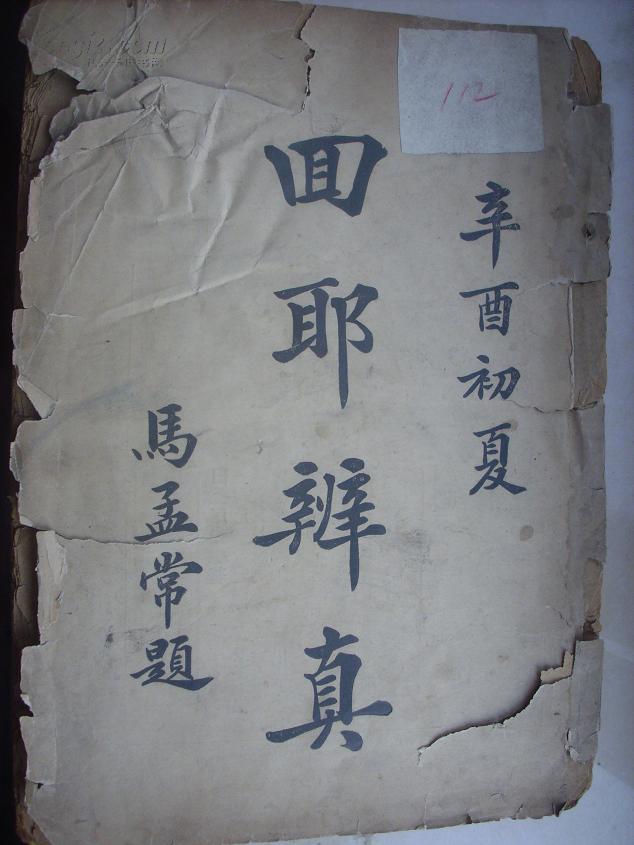 112
辛酉初夏
囬耶辨真
馬孟常題